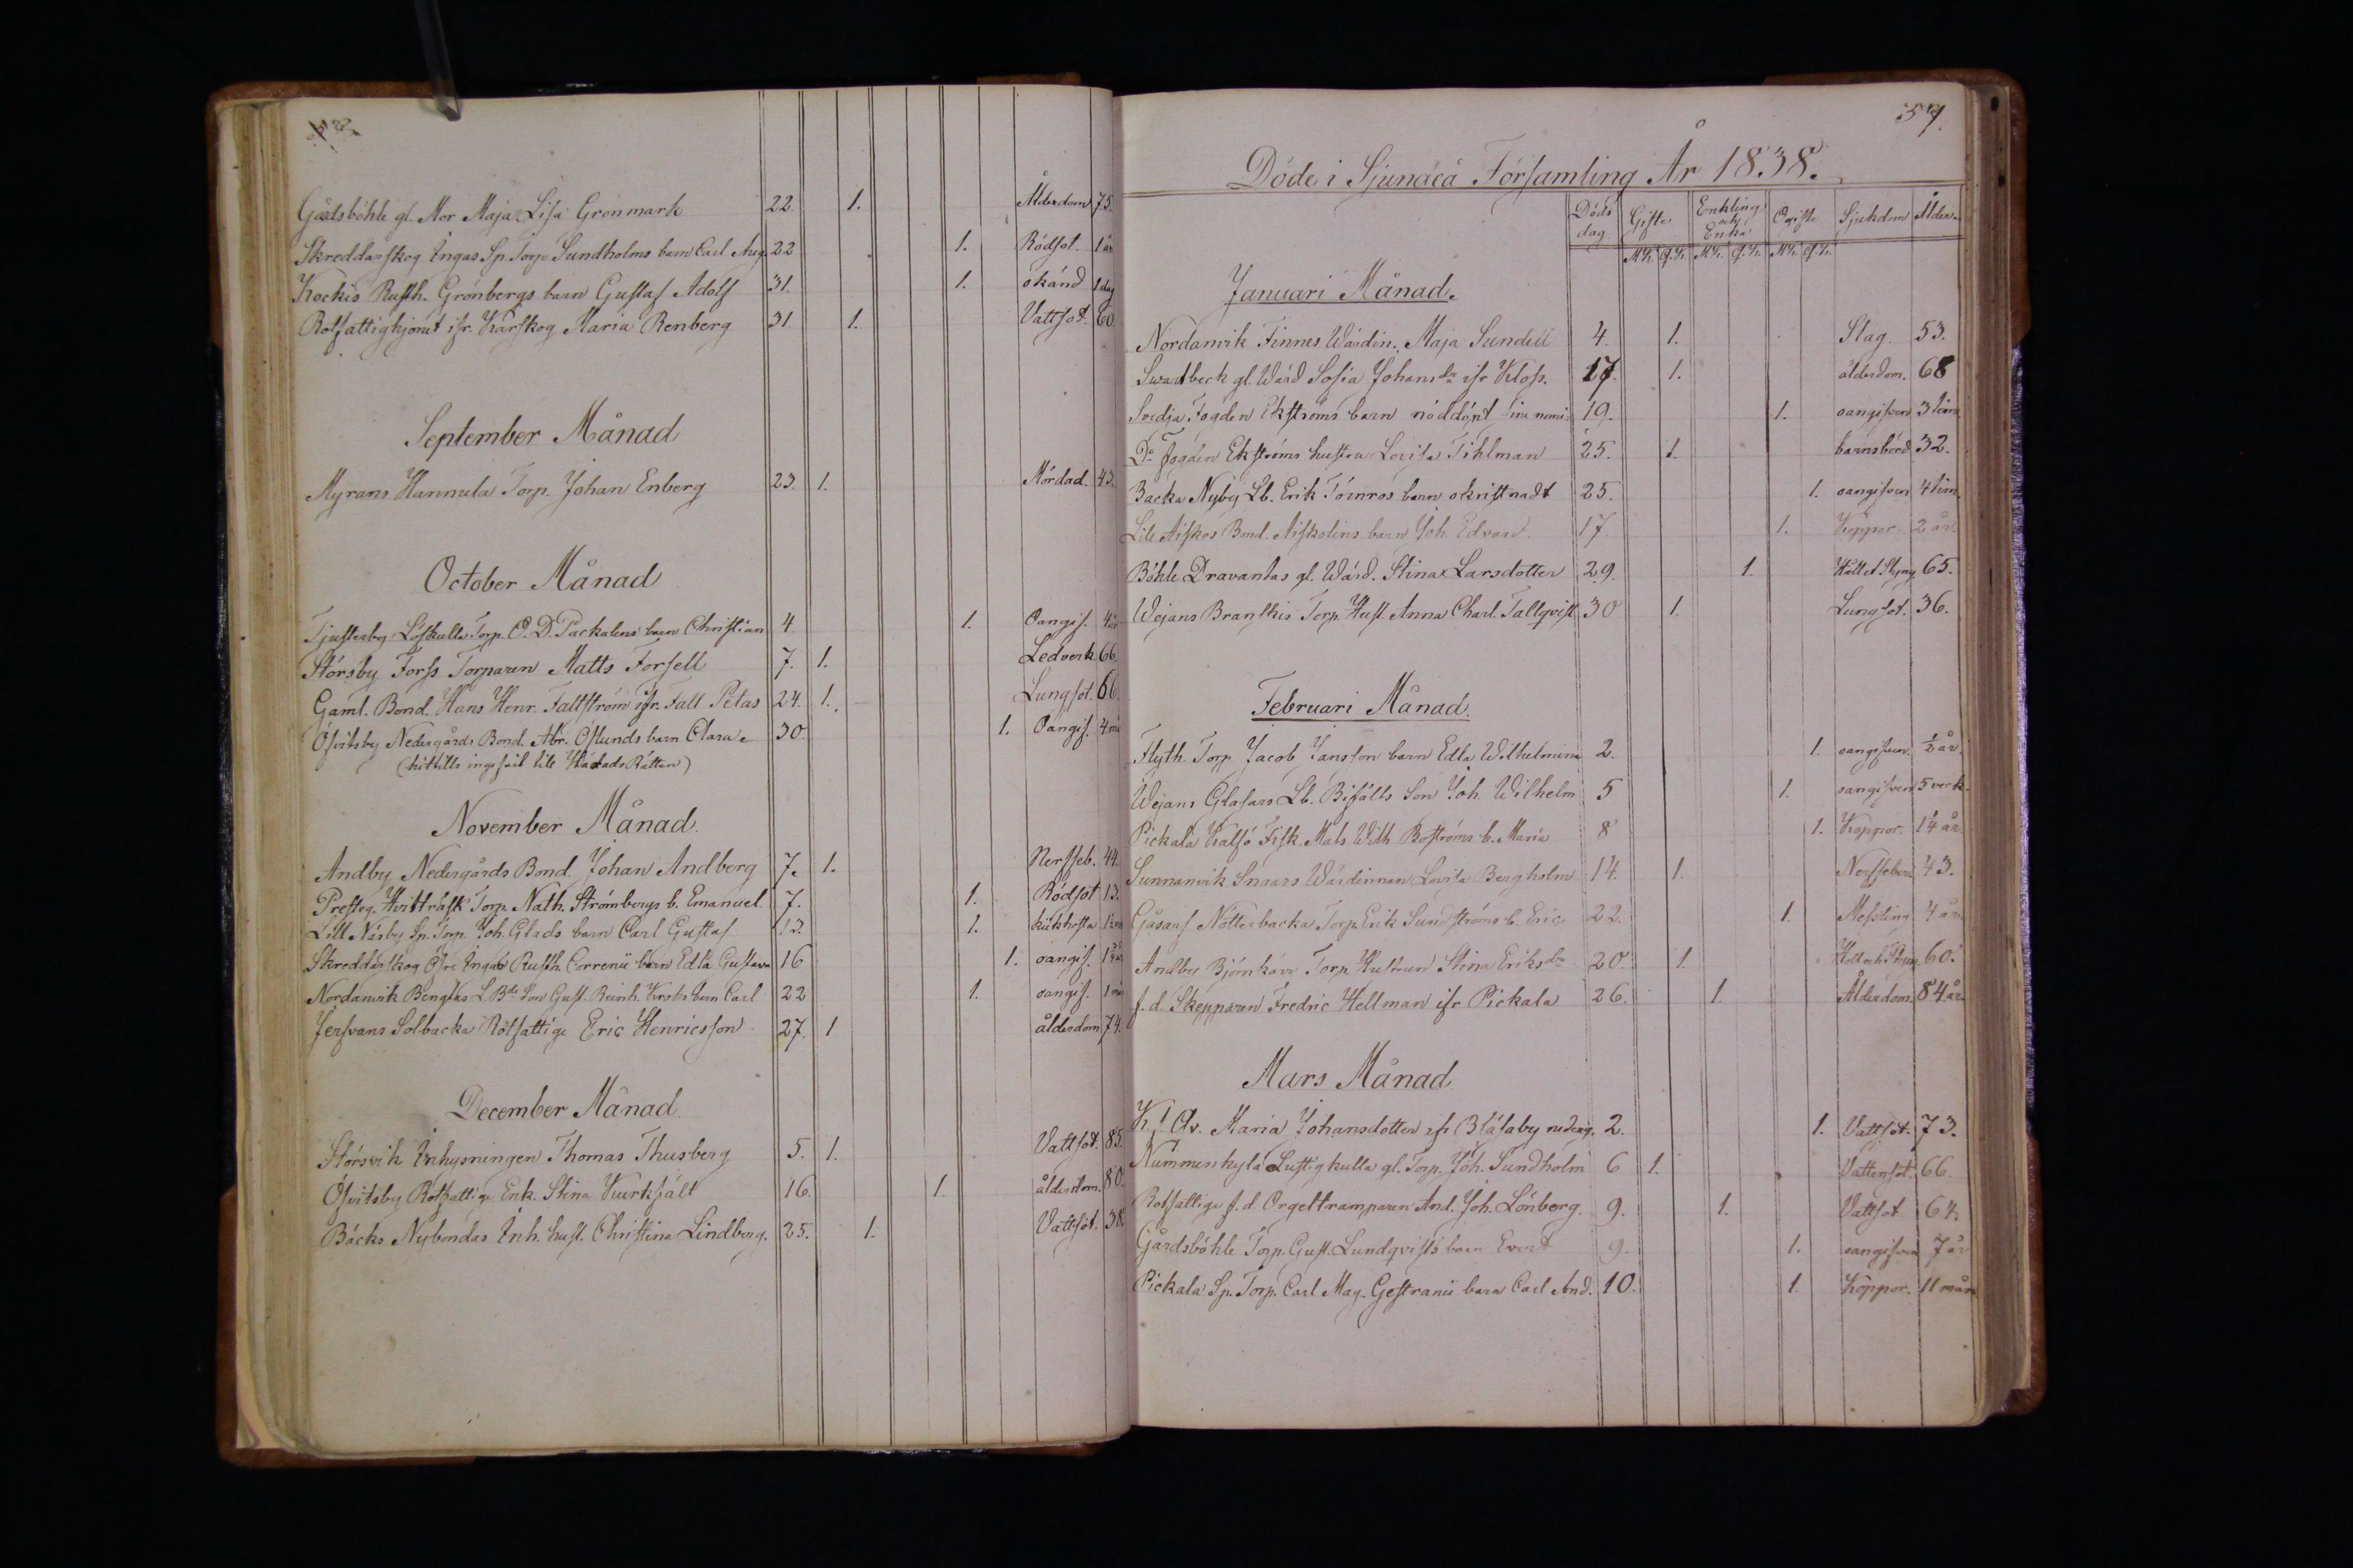 Gårdsböhle gl. Mor Maja Lisa Grönmark 22. 1. Ålderdom 75.
Skreddarskog Ingas Sp. Torp. Sundholms barn Carl Aug. 22 1. Rödsot. 1 år
Kockis Rusth. Grönbergs barn Gustaf Adolf 31. 1. okänd 1 dag
Rotfattighjonet ifr. Kärskog Maria Renberg 31. 1. Vattsot. 60.
September Månad
Myrans Hannula Torp. Johan Enberg 23. 1. Mördad. 43.
October Månad
Tjusterby Löfkulla Torp. C. D. Packalens barn Christian 4 1. Oangif. 4 år
Störsby Forss Torparen Matts Forsell 7. 1. Ledverk. 66.
Gaml. Bond. Hans Henr. Fallström ifr. Fall Petas 24. 1. Lungsot. 66.
Ösvitsby Nedergårds Bond. Abr. Östunds barn Clara 30. 1. Oangif. 4 må
(hittills till Härads Rätten)
November Månad.
Andby Nedergårds Bond. Johan Andberg 7. 1. Nervfeb. 44.
Presteg. Hvitträsk Torp. Nath. Strömbergs b. Emanuel 7. 1. Rödsot 13.
Lill Näsby Sp. Torp. Joh. Glads barn Carl Gustaf 13. 1. kikhosta
Skreddarskog Öfre Ingas Rusth. Correnii barn Edla Gustava 16 1. oangif.
Nordanvik Bengtas L. Bde Son Gust. Reinh. barn Carl 22 1. oangif. 1 må
Jerfvans Solbacka Rotfattige Eric Henricsson 27. 1 ålderdom 74.
December Månad
Störsvik Inhysningen Thomas Thusberg 5. 1. Vattsot. 85.
Ösvitsby Rotfattige Enk. Stina Kurkfält 16. 1. ålderdom. 80.
Bäcks Nybondas Inh. hust. Christina Lindberg. 25. 1. Vattsot. 38.
57.
Döde i Sjundeå Församling År 1838.
Döds dag Gifte Enkling och Enka Ogifte Sjukdom Ålder
Mk. Q.k. Mk. Q.k. Mk. Q.k.
Januari Månad.
Nordanvik Finnes Wärdin. Maja Sundell 4. 1. Slag. 53.
Swartbeck gl. Wärd. Sofia Johansdr ifr Klop. 17. 1. ålderdom. 68
Svidja Fogden Ekströms barn nöddöpt sine nomi: 19. 1. oangifven 3 tim
Do Fogden Ekströms hustru Lovisa Tihlman 25. 1. barnsbörd 32.
Backa Nyby Lb. Erik Törnros barn okristnadt 25. 1. oangifven 4 tim.
Lill Aiskos Bond. Aiskolins barn Joh. Edvard. 17. 1. Koppor. 2 år.
Böhle Dravantas gl. Wärd. Stina Larsdotter 29. 1. Håll et. Styng 65.
Wejans Branskis Torp. Hust. Anna Charl. Tallqvist 30 1. Lungsot. 36.
Februari Månad.
Flyth. Torp. Jacob Jansson barn Edla Wilhelmina 2. 1. oangifven. ½ år.
Wejans Glasars Lb. Bifälts Son Joh. Wilhelm 5 1. oangifven 5 veck.
Pickala Kalfö Fisk. Mats Wilh. Boströms b. Maria 8 1. Koppor. 1¼ år
Sunnanvik Snaars Wärdinnan Lovisa Bergholm 14. 1. Nervfeber 43.
Gåsars Nötterbacka Torp. Erik Sundströms b. Eric 22. 1. Messling 4 år.
Andby Björnkärr Torp. Hustrun Stina Eriksdr 20. 1. Håll och Styng. 60.
f. d. Skepparen Fredric Hellman ifr Pickala 26. 1. Ålderdom. 84 år.
Mars Månad
Maria Johansdotter ifr Blåsaby nederg. 2. 1. Vattsot. 73.
Nummenkylä Lustigkulla gl. Torp. Joh. Sundholm 6 1. Vattensot. 66.
Rotfattige f. d. Orgeltramparen And. Joh. Lönberg. 9. 1. Vattsot 64.
Gårdsböhle Torp. Gust. Lundqvists barn Evert 9. 1. oangifven 7 år
Pickala Sp. Torp. Carl Mag. Gestranii barn Carl And. 10. 1. Koppor. 11 mån